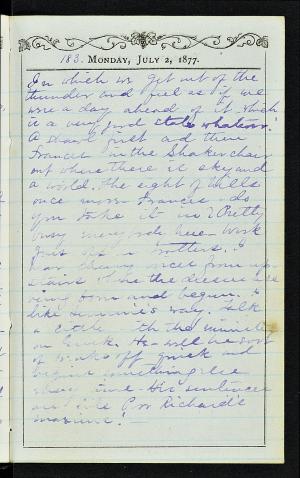 183. MONDAY, JULY 2, 1877.
In which we get out of the
thunder and feel as if we
were a day ahead of it which
is a very good state whatever.
A short rest and then
Frances in the Shaker chair
out where there is sky and
a world. The sight of hills
once more Frances do
you take it in? Pretty
busy everybody here. Work
just as in
hear cheery voices from up
stairs where the
being torn and begun. I
like way. Talk
a little with the minister
on . He will be sort
of breaks off quick and
begins something else
every time. His sentences
are like Poor Richard's
maxims! —